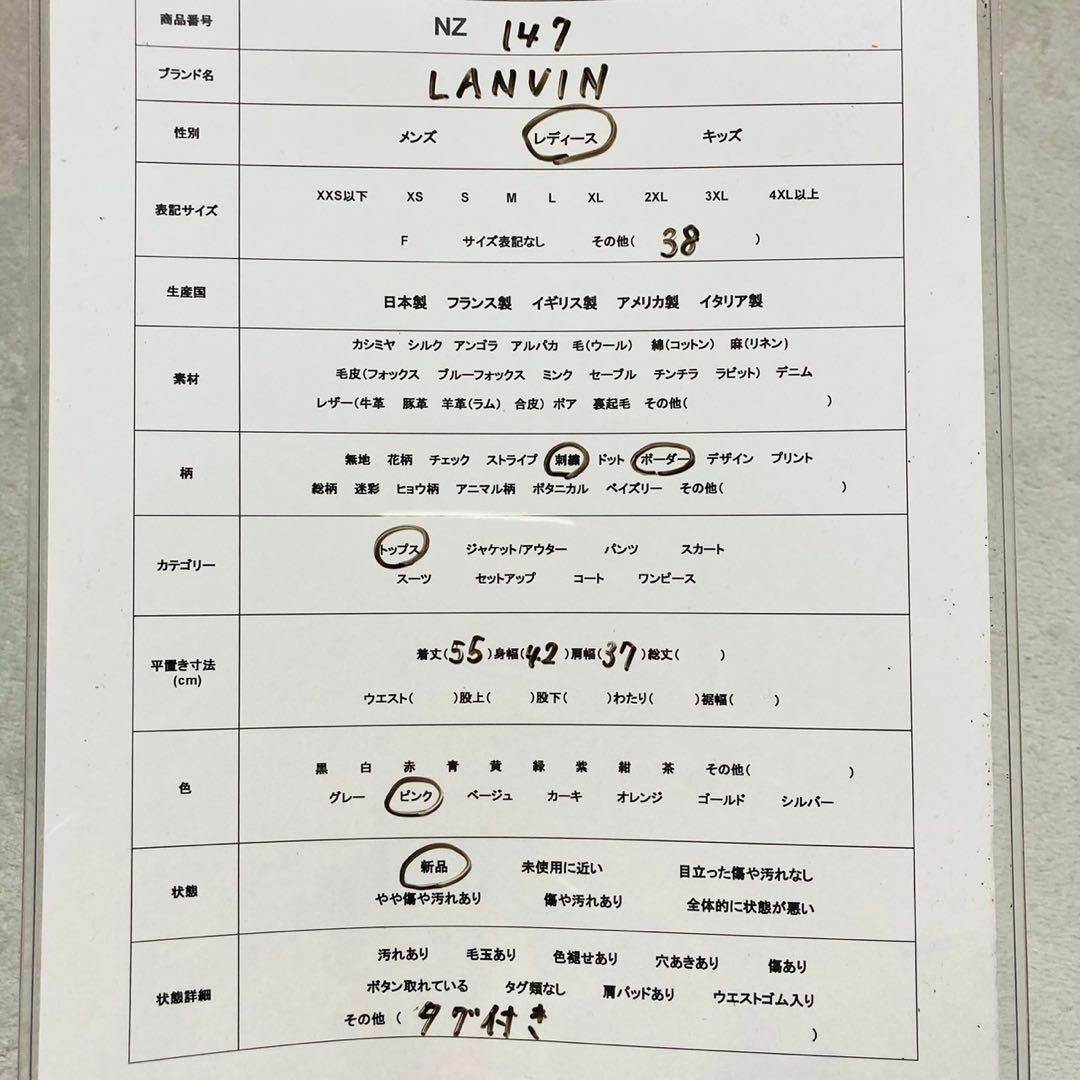 商品番号 NZ 147
ブランド名 LANVIN
性別 メンズ レディース キッズ
表記サイズ
XXS以下 XS S M L XL 2XL 3XL 4XL以上
F サイズ表記なし その他( 38 )
生産国 日本製 フランス製 イギリス製 アメリカ製 イタリア製
素材
カシミヤ シルク アンゴラ アルパカ 毛(ウール) 綿(コットン) 麻(リネン)
毛皮(フォックス ブルーフォックス ミンク セーブル チンチラ ラビット) デニム
レザー(牛革 豚革 羊革(ラム) 合皮) ボア 裏起毛 その他( )
柄
無地 花柄 チェック ストライプ 刺繍 ドット ボーダー デザイン プリント
総柄 迷彩 ヒョウ柄 アニマル柄 ボタニカル ペイズリー その他( )
カテゴリー
トップス ジャケット/アウター パンツ スカート
スーツ セットアップ コート ワンピース
平置き寸法
(cm)
着丈(55)身幅(42)肩幅(37)総丈( )
ウエスト( )股上( )股下( )わたり( )裾幅( )
色
黒 白 赤 青 黄 緑 紫 紺 茶 その他( )
グレー ピンク ベージュ カーキ オレンジ ゴールド シルバー
状態
新品 未使用に近い 目立った傷や汚れなし
やや傷や汚れあり 傷や汚れあり 全体的に状態が悪い
状態詳細
汚れあり 毛玉あり 色褪せあり 穴あきあり 傷あり
ボタン取れている タグ類なし 肩パッドあり ウエストゴム入り
その他 ( タグ付き )